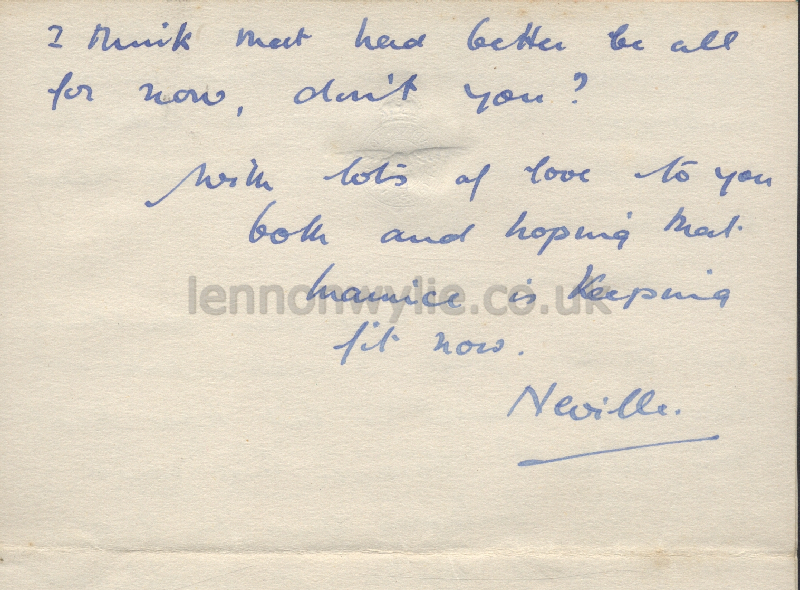 I think that had better be all
for now, don't you?
With lots of love to you
both and hoping that
Maurice is Keeping
lennonwylie.co.uk
fit now.
Neville.